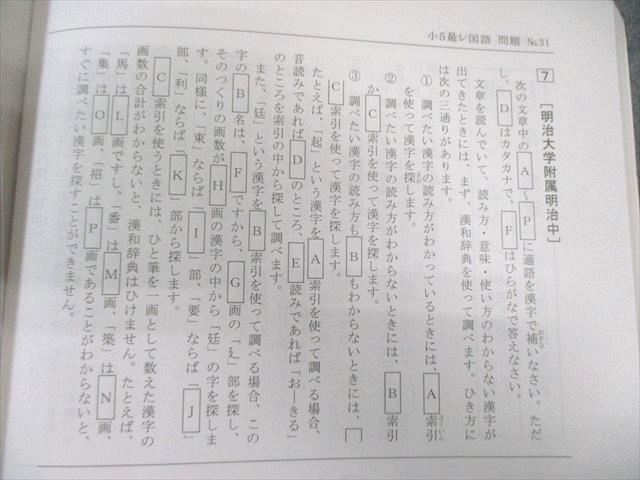 小5最レ国語 問題 №31
7 [明治大学附属明治中]
次の文章中の A ～ P に適語を漢字で補いなさい。ただ
し、 D はカタカナで、 F はひらがなで答えなさい。
文章を読んでいて、読み方・意味・使い方のわからない漢字が
出てきたときには、まず、漢和辞典を使って調べます。ひき方に
は次の三通りがあります。
① 調べたい漢字の読み方がわかっているときには、 A 索引
を使って漢字を探します。
② 調べたい漢字の読み方がわからないときには、 B 索引
か C 索引を使って漢字を探します。
③ 調べたい漢字の読み方も B もわからないときには、
C 索引を使って漢字を探します。
たとえば、「起」という漢字を A 索引を使って調べる場合、
音読みであれば D のところ、 E 読みであれば「お―きる」
のところを索引の中から探して調べます。
また、「廷」という漢字を B 索引を使って調べる場合、この
字の B 名は、 F ですから、 G 画の「廴」部を探し、
そのつくりの画数が H 画の漢字の中から「廷」の字を探しま
す。同様に、「束」ならば「 I 」部、「要」ならば「 J 」
部、「利」ならば「 K 」部から探します。
C 索引を使うときには、ひと筆を一画として数えた漢字の
画数の合計がわからないと、漢和辞典はひけません。たとえば、
「馬」は L 画ですし、「番」は M 画、「築」は N 画、
「集」は O 画、「招」は P 画であることがわからないと、
すぐに調べたい漢字を探すことができません。